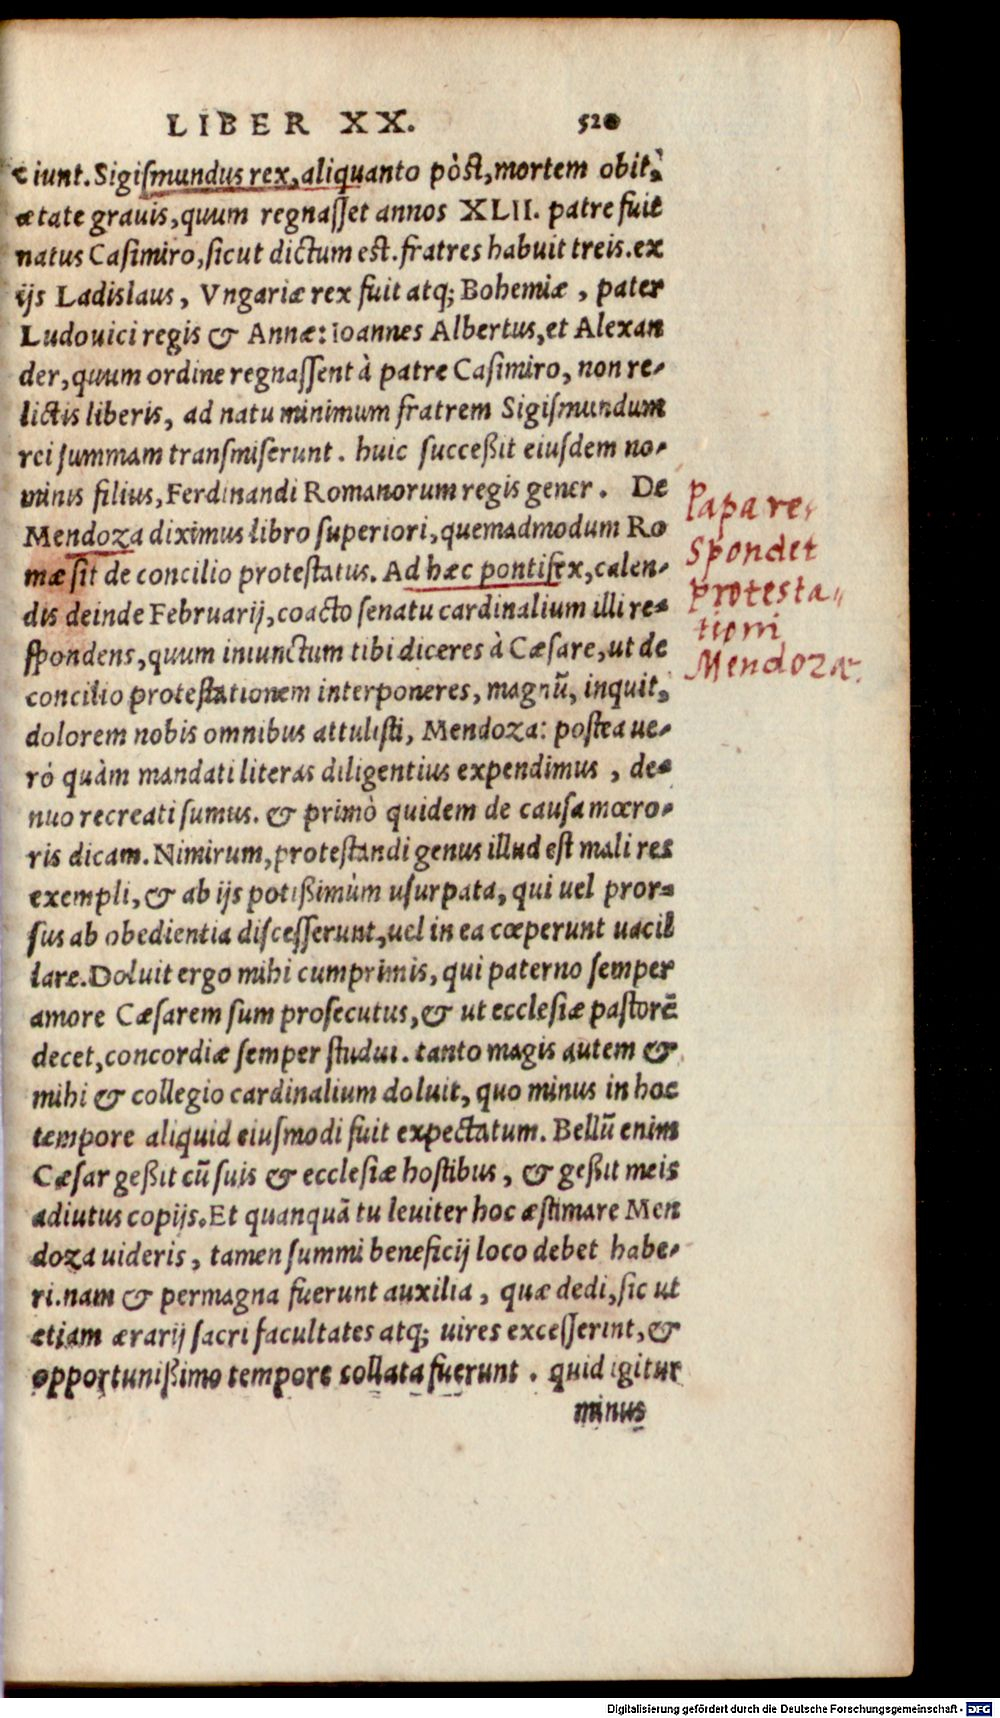 LIBER XX. 520
ciunt. Sigismundus rex, aliquanto pòst, mortem obit,
ætate grauis, quum regnasset annos XLII. patre fuit
natus Casimiro, sicut dictum est. fratres habuit treis. ex
ijs Ladislaus, Vngariæ rex fuit atq; Bohemiæ, pater
Ludouici regis & Annæ: Ioannes Albertus, et Alexan
der, quum ordine regnassent à patre Casimiro, non re-
lictis liberis, ad natu minimum fratrem Sigismundum
rei summam transmiserunt. huic succeßit eiusdem no-
minis filius, Ferdinandi Romanorum regis gener. De
Mendoza diximus libro superiori, quemadmodum Ro
mæ sit de concilio protestatus. Ad hæc pontifex, calen-
dis deinde Februarij, coacto senatu cardinalium illi re-
spondens, quum iniunctum tibi diceres à Cæsare, ut de
concilio protestationem interponeres, magnũ, inquit,
dolorem nobis omnibus attulisti, Mendoza: postea ue-
rò quàm mandati literas diligentius expendimus, de-
nuo recreati sumus. & primò quidem de causa mœro-
ris dicam. Nimirum, protestandi genus illud est mali res
exempli, & ab ijs potißimùm usurpata, qui uel pror-
sus ab obedientia discesserunt, uel in ea cœperunt uacil
lare. Doluit ergo mihi cumprimis, qui paterno semper
amore Cæsarem sum prosecutus, & ut ecclesiæ pastorẽ
decet, concordiæ semper studui. tanto magis autem &
mihi & collegio cardinalium doluit, quo minus in hoc
tempore aliquid eiusmodi fuit expectatum. Bellũ enim
Cæsar geßit cũ suis & ecclesiæ hostibus, & geßit meis
adiutus copijs. Et quanquã tu leuiter hoc æstimare Men
doza uideris, tamen summi beneficij loco debet habe-
ri. nam & permagna fuerunt auxilia, quæ dedi, sic ut
etiam ærarij sacri facultates atq; uires excesserint, &
opportunißimo tempore collata fuerunt. quid igitur
minus
Papa re-
spondet
protesta-
tioni
Mendozæ.
Digitalisierung gefördert durch die Deutsche Forschungsgemeinschaft - DFG